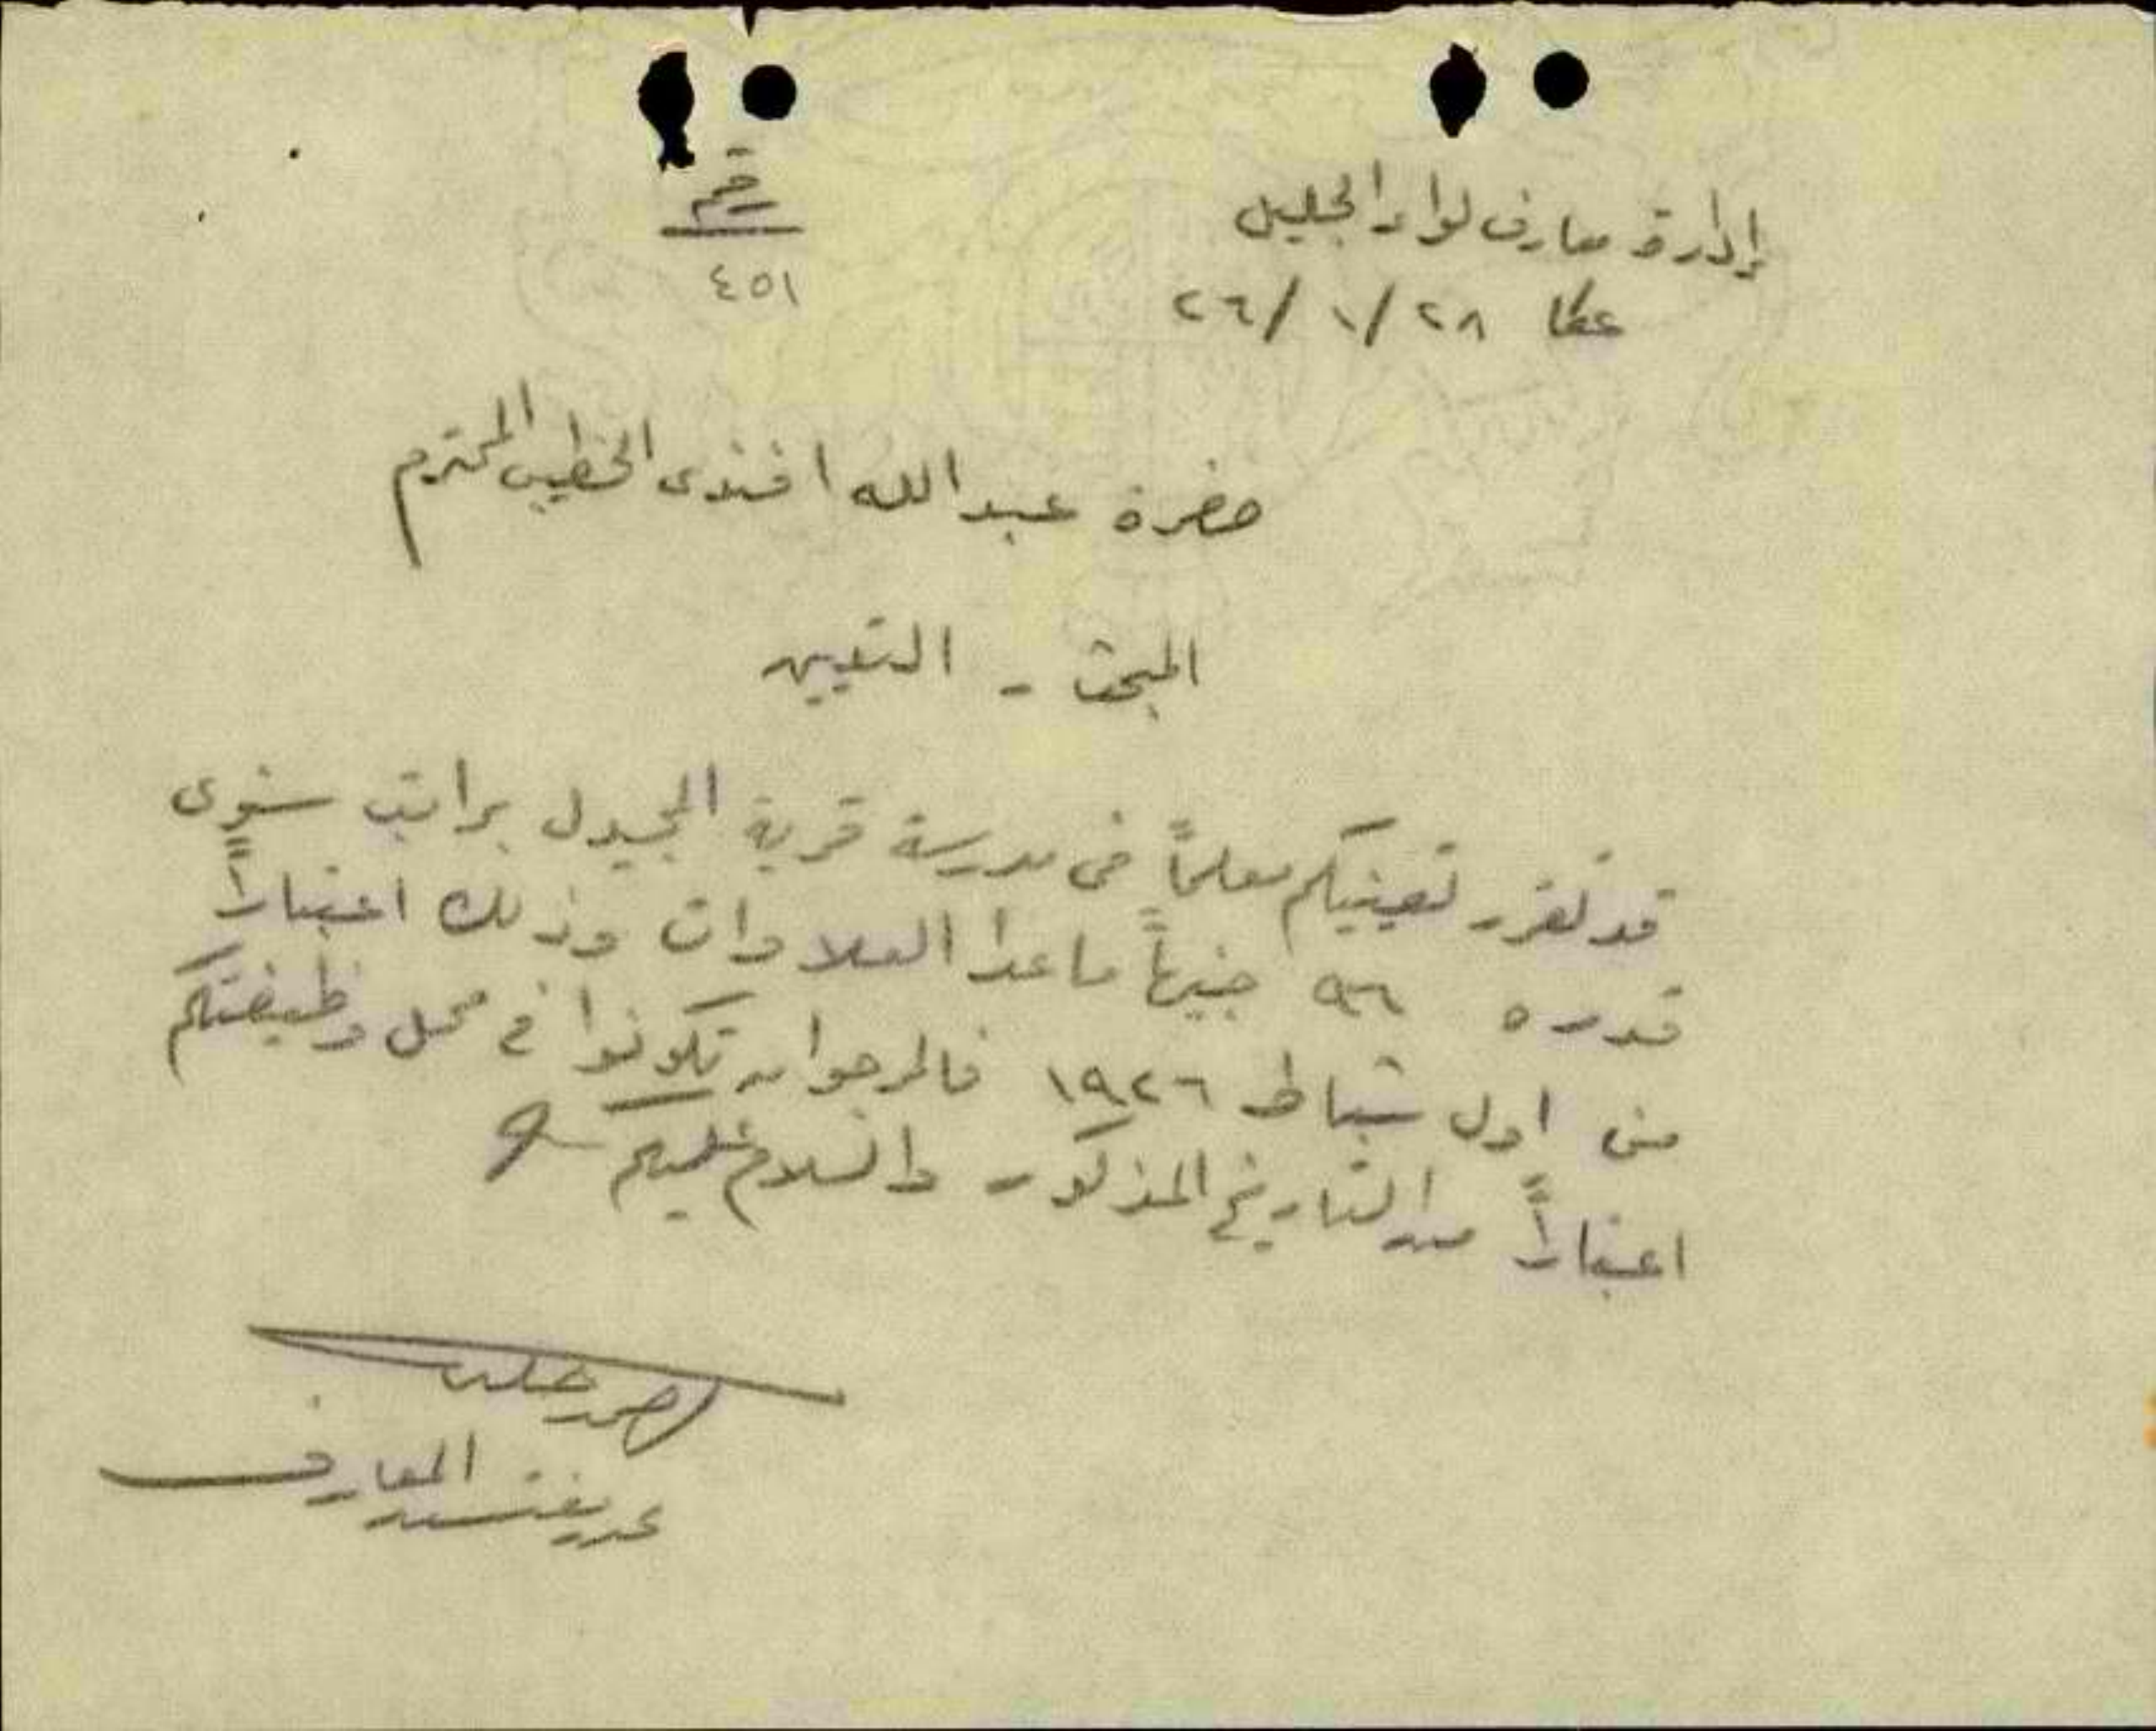 إدارة معارف لواء الجليل
رقم
عكا ٢٨/١/٢٦
٤٥١
حضرة عبدالله افندى الخطيب المحترم
المبحث - التعيين
قد تقرر تعيينكم معلماً فى مدرسة قرية المجيدل براتب سنوى
قدره ٩٦ جنيهاً ماعدا العلاوات وذلك اعتباراً
من اول شباط ١٩٢٦ فالمرجو ان تكونوا في محل وظيفتكم
اعتباراً من التاريخ المذكور والسلام عليكم
احمد خليفه
مفتش المعارف